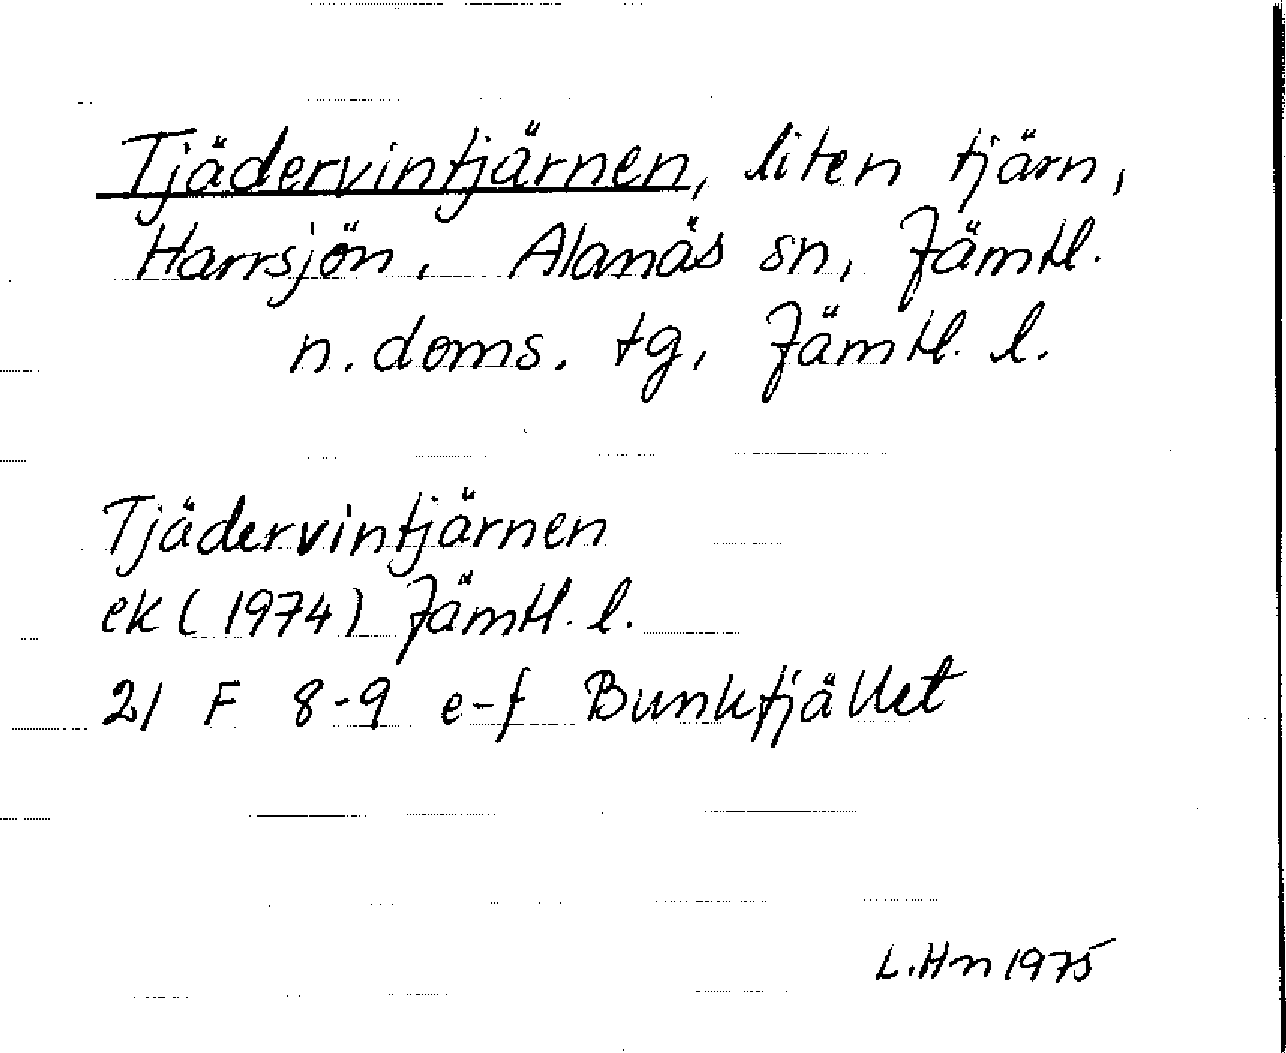 Tjädervintjärnen, liten tjärn,
Harrsjön, Alanäs sn, Jämtl.
n. doms. tg, Jämtl. l.
Tjädervintjärnen
ek (1974) Jämtl. l.
21 F 8-9 e-f Bunkfjället
L.Hn 1975